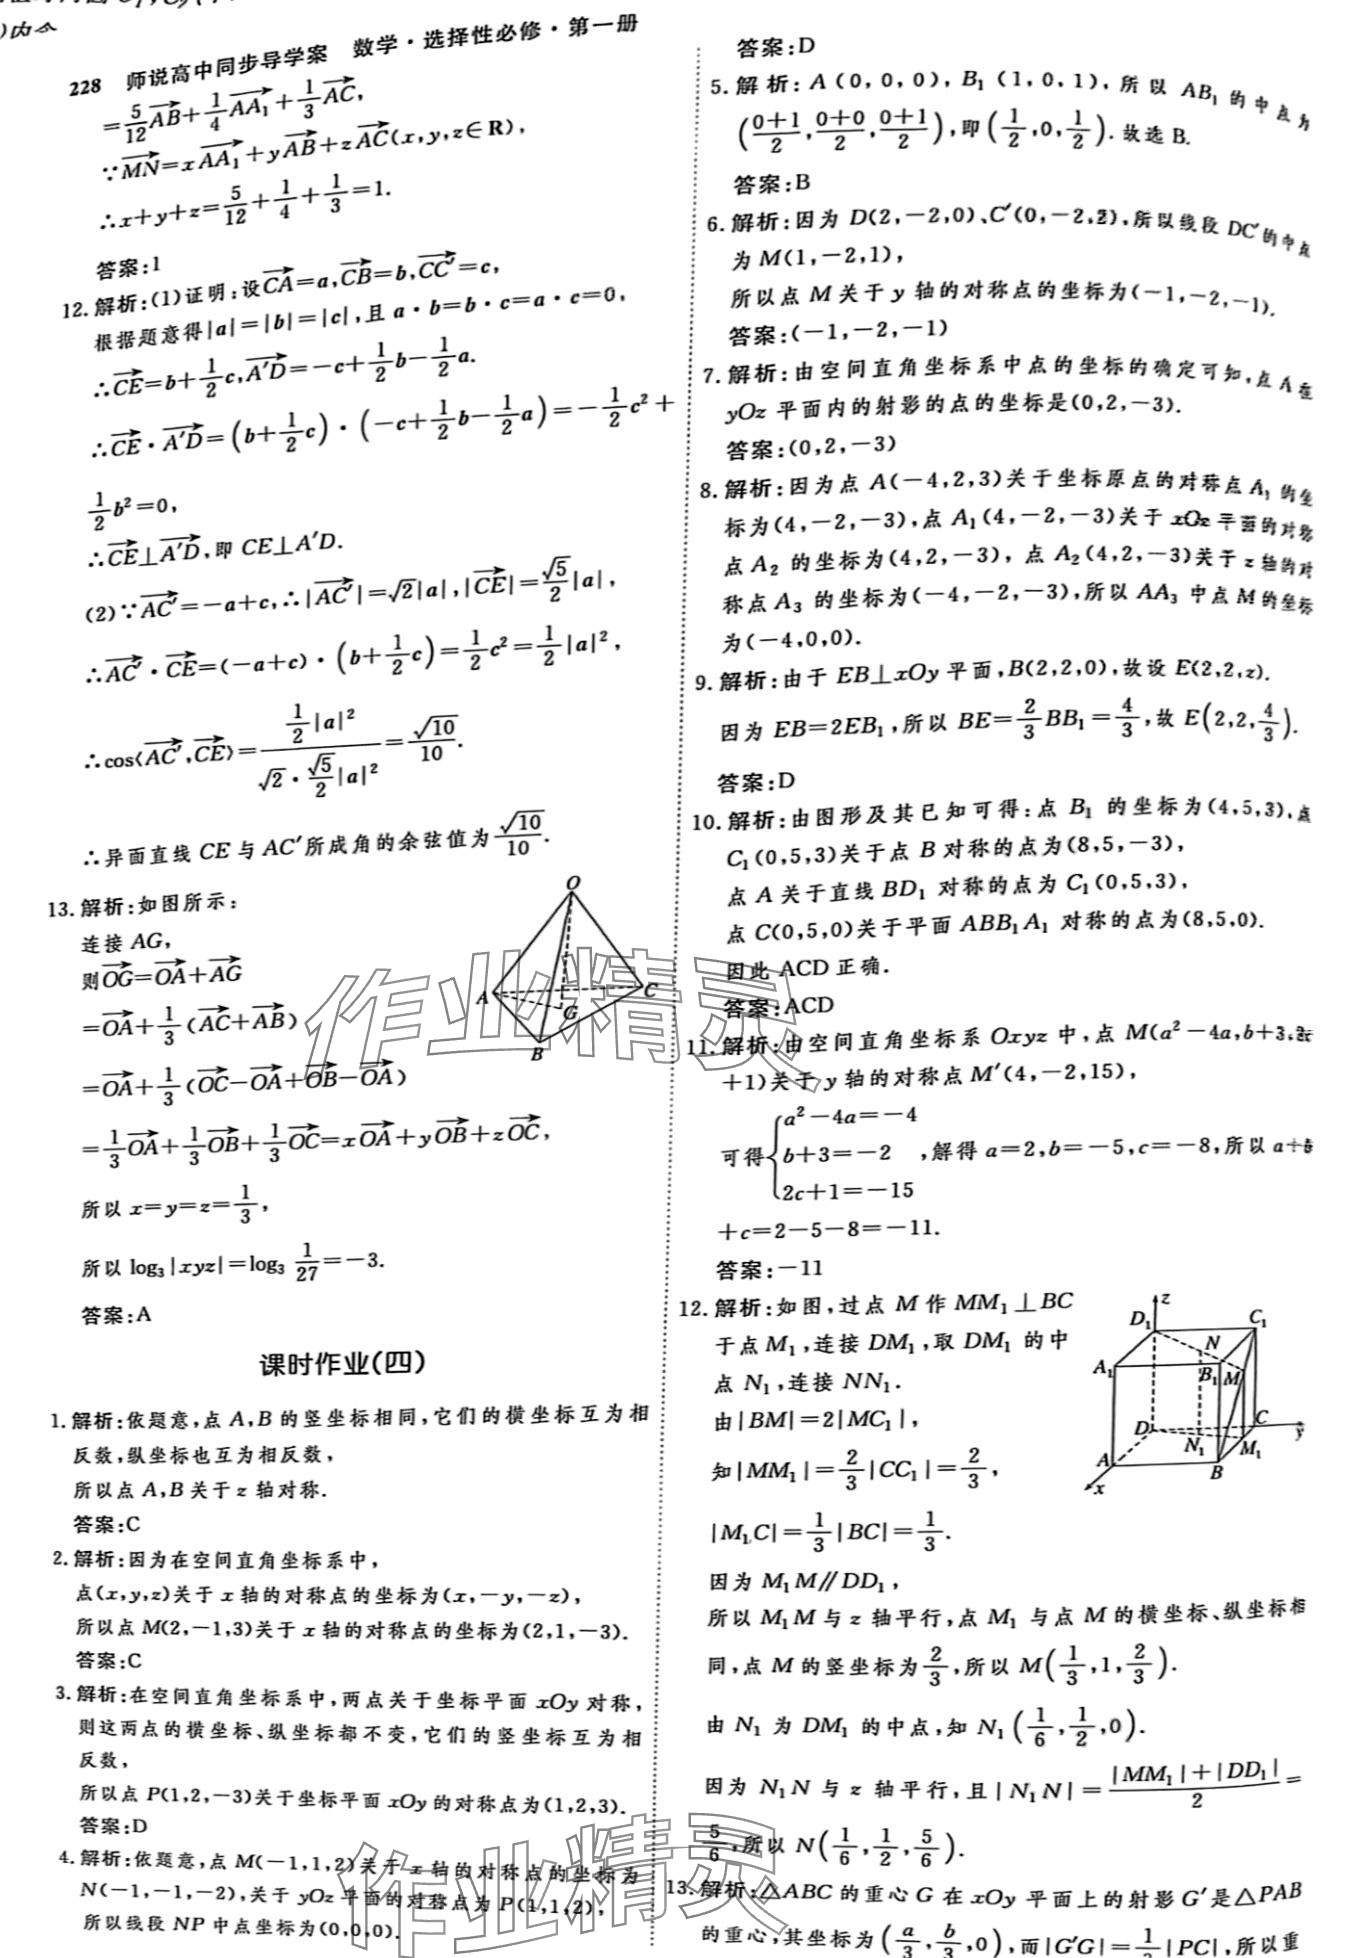 )内会
228 师说高中同步导学案 数学·选择性必修·第一册
=5/12 AB→+1/4 AA₁→+1/3 AC→,
∵MN→=xAA₁→+yAB→+zAC→(x,y,z∈R),
∴x+y+z=5/12+1/4+1/3=1.
答案:1
12.解析:(1)证明:设CA→=a,CB→=b,CC′→=c,
根据题意得|a|=|b|=|c|,且 a·b=b·c=a·c=0,
∴CE→=b+1/2 c,A′D→=-c+1/2 b-1/2 a.
∴CE→·A′D→=(b+1/2 c)·(-c+1/2 b-1/2 a)=-1/2 c²+
1/2 b²=0,
∴CE→⊥A′D→,即 CE⊥A′D.
(2)∵AC′→=-a+c,∴|AC′→|=√2|a|,|CE→|=√5/2|a|,
∴AC′→·CE→=(-a+c)·(b+1/2 c)=1/2 c²=1/2|a|²,
∴cos⟨AC′→,CE→⟩=(1/2|a|²)/(√2·√5/2|a|²)=√10/10.
∴异面直线 CE 与 AC′所成角的余弦值为√10/10.
13.解析:如图所示:
连接 AG,
则OG→=OA→+AG→
=OA→+1/3(AC→+AB→)
=OA→+1/3(OC→-OA→+OB→-OA→)
=1/3 OA→+1/3 OB→+1/3 OC→=xOA→+yOB→+zOC→,
所以 x=y=z=1/3,
所以 log₃|xyz|=log₃ 1/27=-3.
答案:A
O
A
C
G
B
课时作业(四)
1.解析:依题意,点 A,B 的竖坐标相同,它们的横坐标互为相
反数,纵坐标也互为相反数,
所以点 A,B 关于 z 轴对称.
答案:C
2.解析:因为在空间直角坐标系中,
点(x,y,z)关于 x 轴的对称点的坐标为(x,-y,-z),
所以点 M(2,-1,3)关于 x 轴的对称点的坐标为(2,1,-3).
答案:C
3.解析:在空间直角坐标系中,两点关于坐标平面 xOy 对称,
则这两点的横坐标、纵坐标都不变,它们的竖坐标互为相
反数,
所以点 P(1,2,-3)关于坐标平面 xOy 的对称点为(1,2,3).
答案:D
4.解析:依题意,点 M(-1,1,2)关于 x 轴的对称点的坐标为
N(-1,-1,-2),关于 yOz 平面的对称点为 P(1,1,2),
所以线段 NP 中点坐标为(0,0,0).
答案:D
5.解析:A(0,0,0),B₁(1,0,1),所以 AB₁ 的中点为
((0+1)/2,(0+0)/2,(0+1)/2),即(1/2,0,1/2).故选 B.
答案:B
6.解析:因为 D(2,-2,0)、C′(0,-2,2),所以线段 DC′的中点
为 M(1,-2,1),
所以点 M 关于 y 轴的对称点的坐标为(-1,-2,-1).
答案:(-1,-2,-1)
7.解析:由空间直角坐标系中点的坐标的确定可知,点 A 在
yOz 平面内的射影的点的坐标是(0,2,-3).
答案:(0,2,-3)
8.解析:因为点 A(-4,2,3)关于坐标原点的对称点 A₁ 的坐
标为(4,-2,-3),点 A₁(4,-2,-3)关于 xOz 平面的对称
点 A₂ 的坐标为(4,2,-3),点 A₂(4,2,-3)关于 z 轴的对
称点 A₃ 的坐标为(-4,-2,-3),所以 AA₃ 中点 M 的坐标
为(-4,0,0).
9.解析:由于 EB⊥xOy 平面,B(2,2,0),故设 E(2,2,z).
因为 EB=2EB₁,所以 BE=2/3 BB₁=4/3,故 E(2,2,4/3).
答案:D
10.解析:由图形及其已知可得:点 B₁ 的坐标为(4,5,3),点
C₁(0,5,3)关于点 B 对称的点为(8,5,-3),
点 A 关于直线 BD₁ 对称的点为 C₁(0,5,3),
点 C(0,5,0)关于平面 ABB₁A₁ 对称的点为(8,5,0).
因此 ACD 正确.
答案:ACD
11.解析:由空间直角坐标系 Oxyz 中,点 M(a²-4a,b+3,2c
+1)关于 y 轴的对称点 M′(4,-2,15),
可得{a²-4a=-4
b+3=-2 ,解得 a=2,b=-5,c=-8,所以 a+b
2c+1=-15
+c=2-5-8=-11.
答案:-11
12.解析:如图,过点 M 作 MM₁⊥BC
于点 M₁,连接 DM₁,取 DM₁ 的中
点 N₁,连接 NN₁.
由|BM|=2|MC₁|,
知|MM₁|=2/3|CC₁|=2/3,
|M₁C|=1/3|BC|=1/3.
z
D₁
C₁
N
A₁
B₁
M
D
C
y
N₁
M₁
A
B
x
因为 M₁M∥DD₁,
所以 M₁M 与 z 轴平行,点 M₁ 与点 M 的横坐标、纵坐标相
同,点 M 的竖坐标为2/3,所以 M(1/3,1,2/3).
由 N₁ 为 DM₁ 的中点,知 N₁(1/6,1/2,0).
因为 N₁N 与 z 轴平行,且|N₁N|=(|MM₁|+|DD₁|)/2=
5/6,所以 N(1/6,1/2,5/6).
13.解析:△ABC 的重心 G 在 xOy 平面上的射影 G′是△PAB
的重心,其坐标为(a/3,b/3,0),而|G′G|=1/3|PC|,所以重
作业精灵
作业精灵